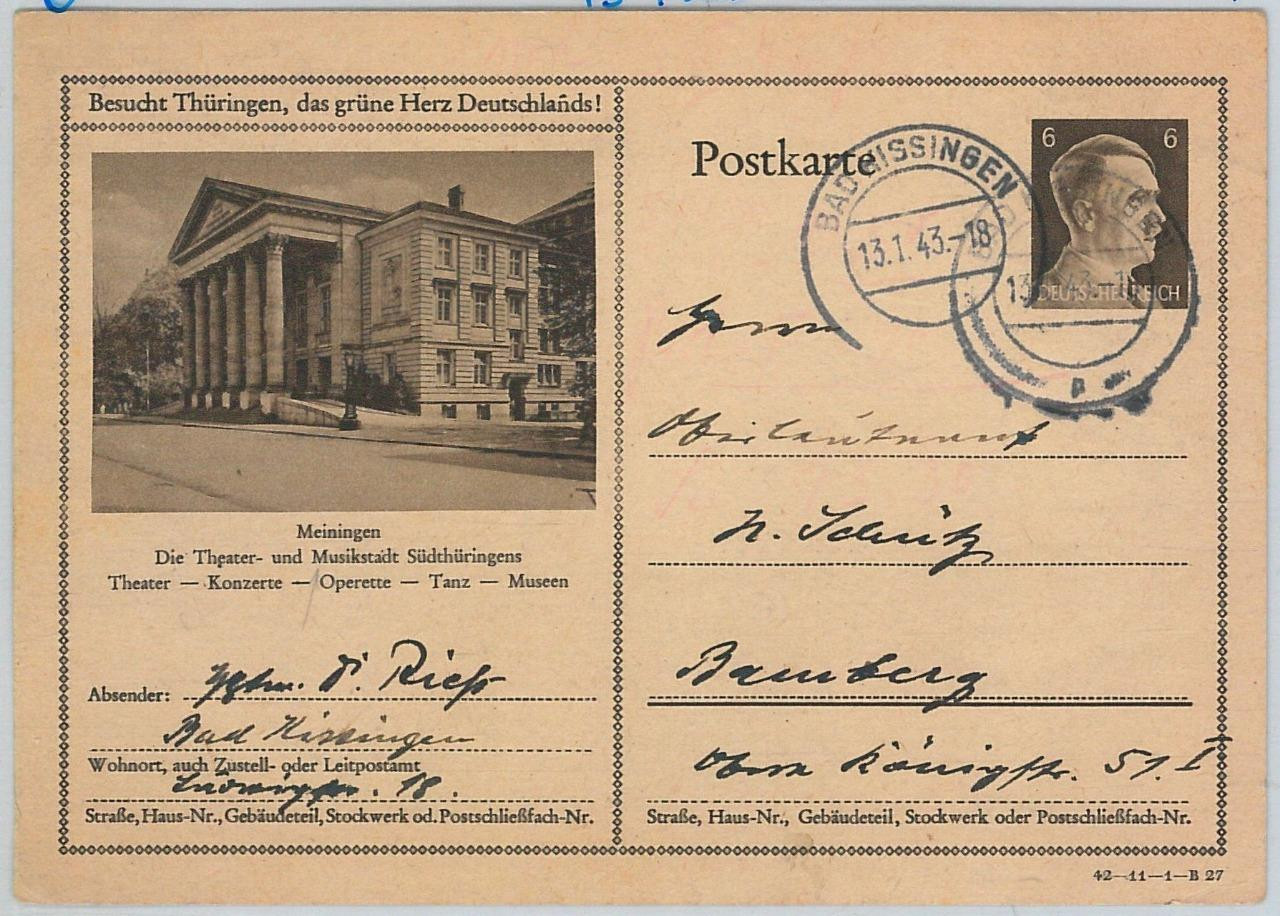 Besucht Thüringen, das grüne Herz Deutschlands!
Meiningen
Die Theater- und Musikstadt Südthüringens
Theater — Konzerte — Operette — Tanz — Museen
Absender: Rieß
Bad Kissingen
Wohnort, auch Zustell- oder Leitpostamt
Ludwigstr. 18.
Straße, Haus-Nr., Gebäudeteil, Stockwerk od. Postschließfach-Nr.
Postkarte
6 6
DEUTSCHES REICH
BAD KISSINGEN
13.1.43.-18
Herrn
Oberleutnant
H. Schütz
Bamberg
Obere Königstr. 51. I
Straße, Haus-Nr., Gebäudeteil, Stockwerk oder Postschließfach-Nr.
42—11—1—B 27